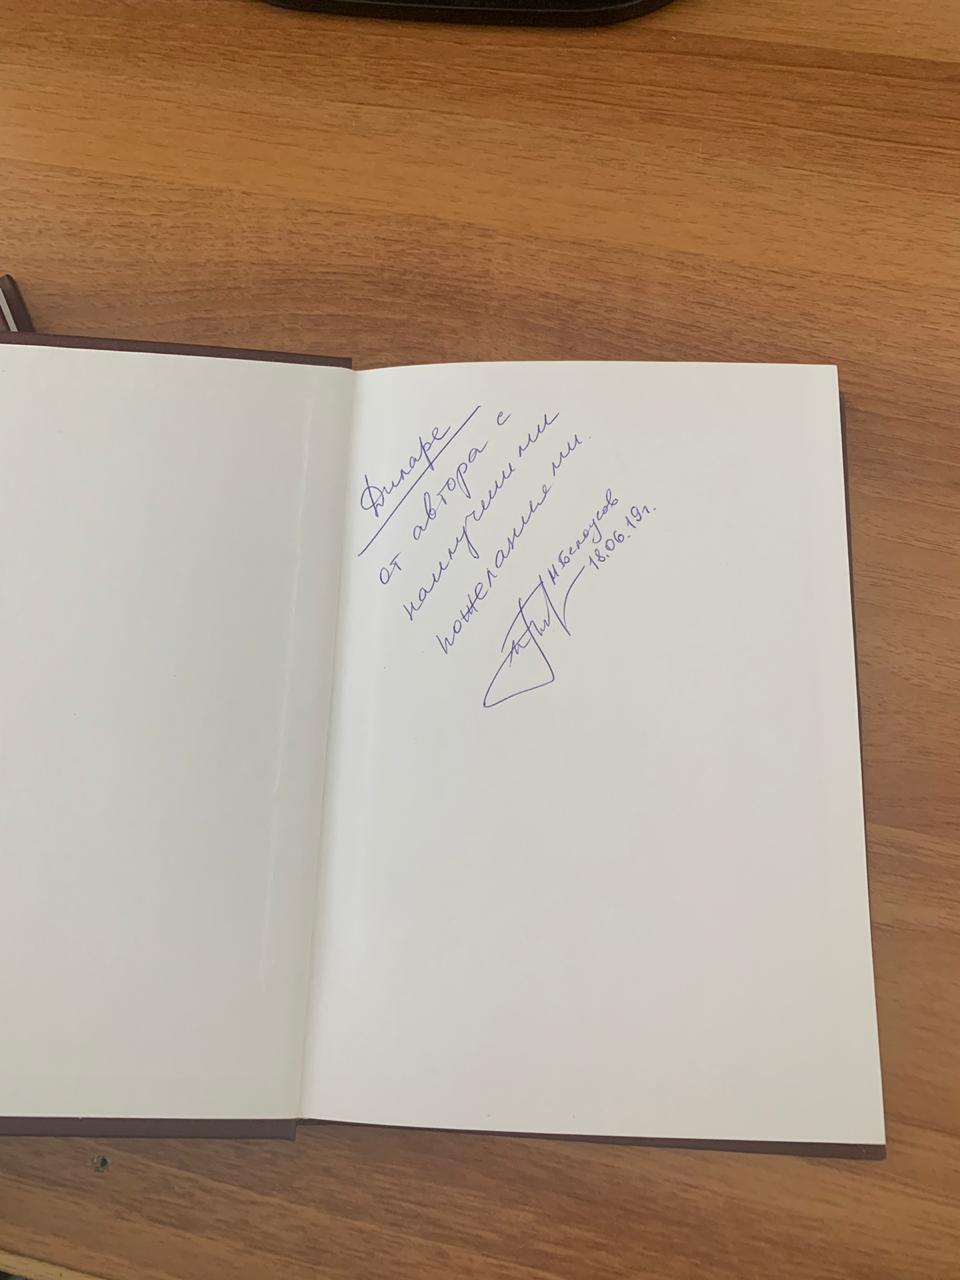 Динаре
от автора с
наилучшими
пожеланиями.
Н Белоусов
18.06.19г.